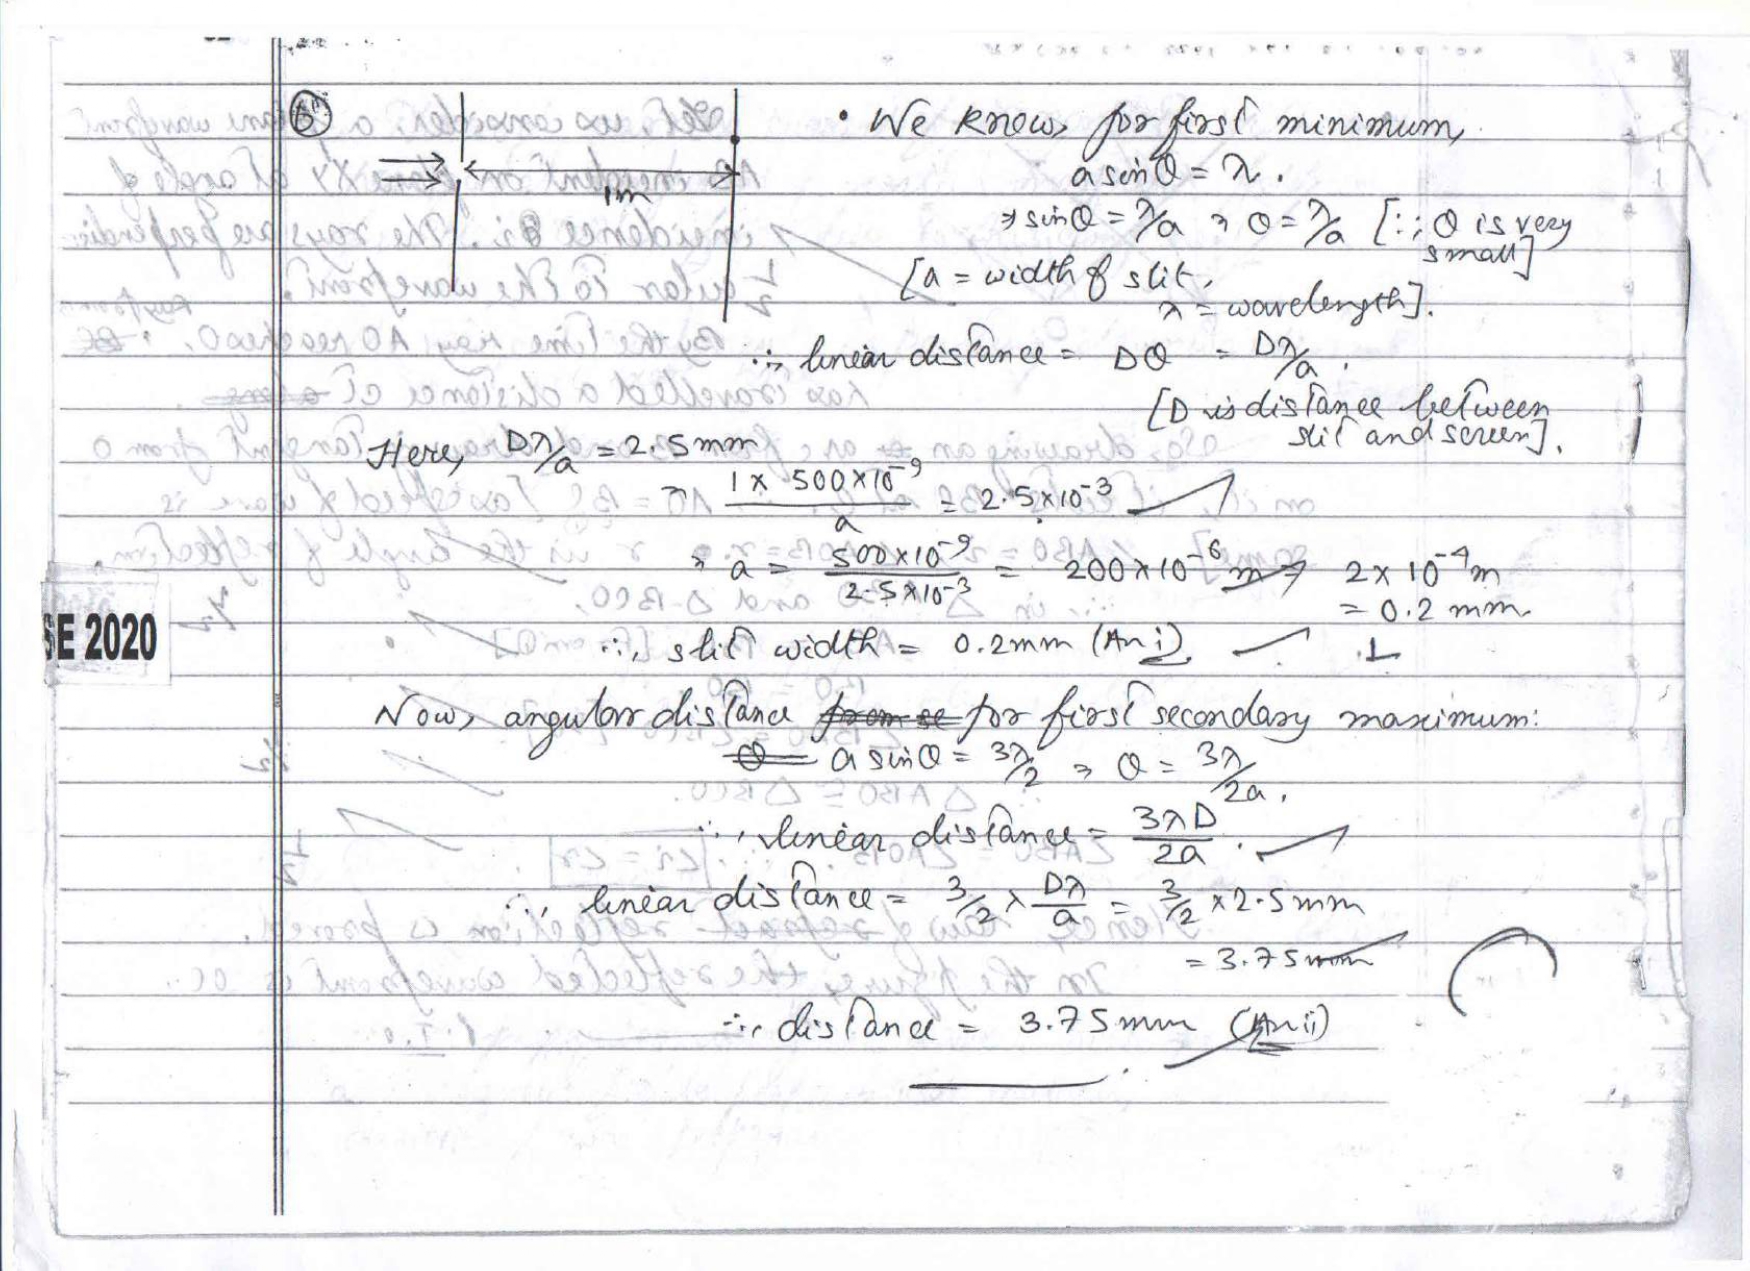 • We know, for first minimum,
a sinθ = λ.
⇒ sinθ = λ/a ⇒ θ = λ/a [∵ θ is very small]
1m
[a = width of slit,
λ = wavelength].
∴ linear distance = Dθ = Dλ/a.
[D is distance between
slit and screen].
Here, Dλ/a = 2.5mm
⇒ 1 × 500×10⁻⁹ / a = 2.5×10⁻³
⇒ a = 500×10⁻⁹ / 2.5×10⁻³ = 200×10⁻⁶ m ⇒ 2×10⁻⁴m
= 0.2 mm
SE 2020
∴ slit width = 0.2mm (Ans i) 1
Now, angular distance for first secondary maximum:
a sinθ = 3λ/2 ⇒ θ = 3λ/2a.
∴ linear distance = 3λD/2a.
∴ linear distance = 3/2 × Dλ/a = 3/2 × 2.5mm
= 3.75mm
∴ distance = 3.75mm (Ans ii)